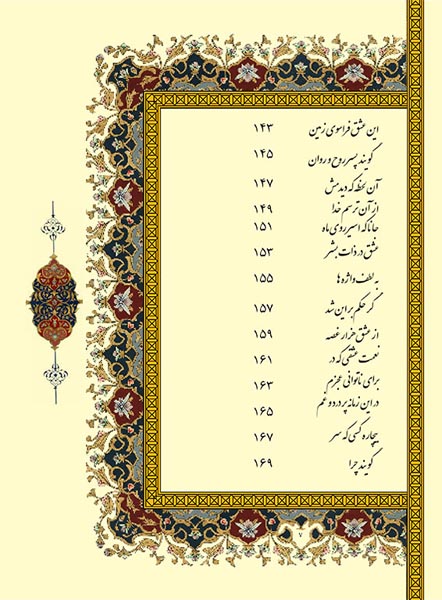 این عشق فراسوی زمین ۱۴۳
گویند پسر روح و روان ۱۴۵
آن لحظه که دیدمش ۱۴۷
از آن ترسم خدا ۱۴۹
جانا که اسیر روی ماه ۱۵۱
عشق در ذات بشر ۱۵۳
به لطف واژه ها ۱۵۵
گر حکم بر این شد ۱۵۷
از عشق هزار غصه ۱۵۹
نعمت عشقی که در ۱۶۱
برای ناتوانی عجزم ۱۶۳
در این زمانه پر درد و غم ۱۶۵
بیچاره کسی که سر ۱۶۷
گویند چرا ۱۶۹
۷